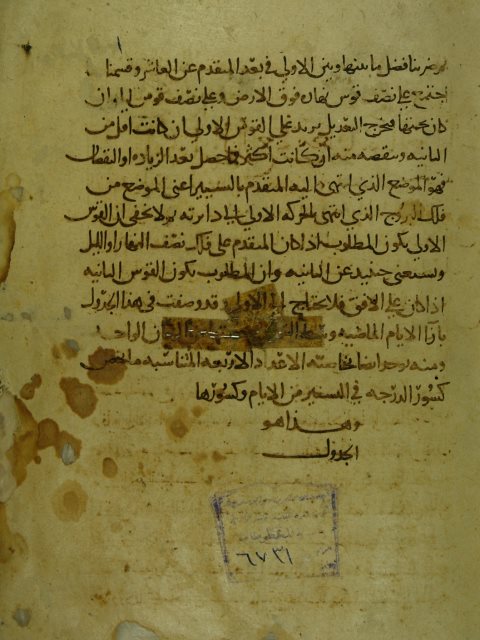 وضربنا فضل ما بينها وبين الاولى في بعد المتقدم عن العاشر وقسمنا
اجتمع على نصف قوس نهاره فوق الارض وعلى نصف قوس ليله ان
كان تحتها فيخرج التعديل يزيد على القوس الاولى ان كانت اقل من
الثانيه وننقصه منه ان كانت اكثر فما حصل بعد الزياده او النقصان
فهو الموضع الذي انتهى اليه المتقدم بالتسيير اعني الموضع من
فلك البروج الذي انتهى بالحركه الاولى الى دايرته ولا يخفى ان القوس
الاولى يكون المطلوب اذا كان المتقدم على فلك نصف النهار او الليل
ويستغنى حينئذ عن الثانيه وان المطلوب يكون القوس الثانيه
اذا كان على الافق فلا يحتاج الى الاولى وقد وضعت في هذا الجدول
بازا الايام الماضيه الواحد
ومنه يوخذ ايضا بخاصته الاعداد الاربعه المتناسبه ما يخص
كسور الدرجه في التسيير من الايام وكسورها
وهذا هو
الجدول
٦٧٣١